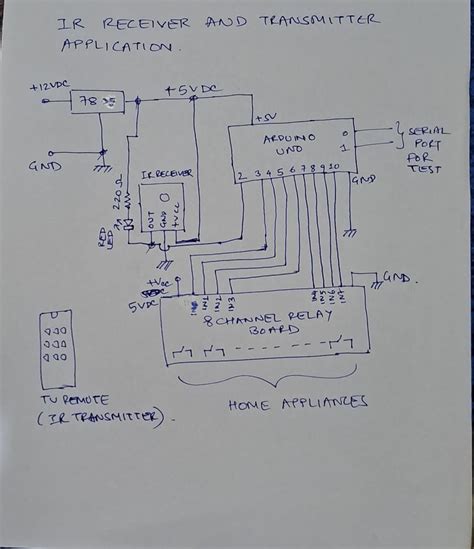 IR RECEIVER AND TRANSMITTER
APPLICATION.
+12VDC
+5VDC
+5V
ARDUINO
UNO
0
1
SERIAL
PORT
FOR
TEST
GND
IR RECEIVER
220Ω
RED
LED
OUT
GND
+VCC
2 3 4 5 6 7 8 9 10
GND
+VCC
5VDC
IN1
IN2
IN3
GND.
8 CHANNEL RELAY
BOARD
HOME APPLIANCES
TV REMOTE
(IR TRANSMITTER).